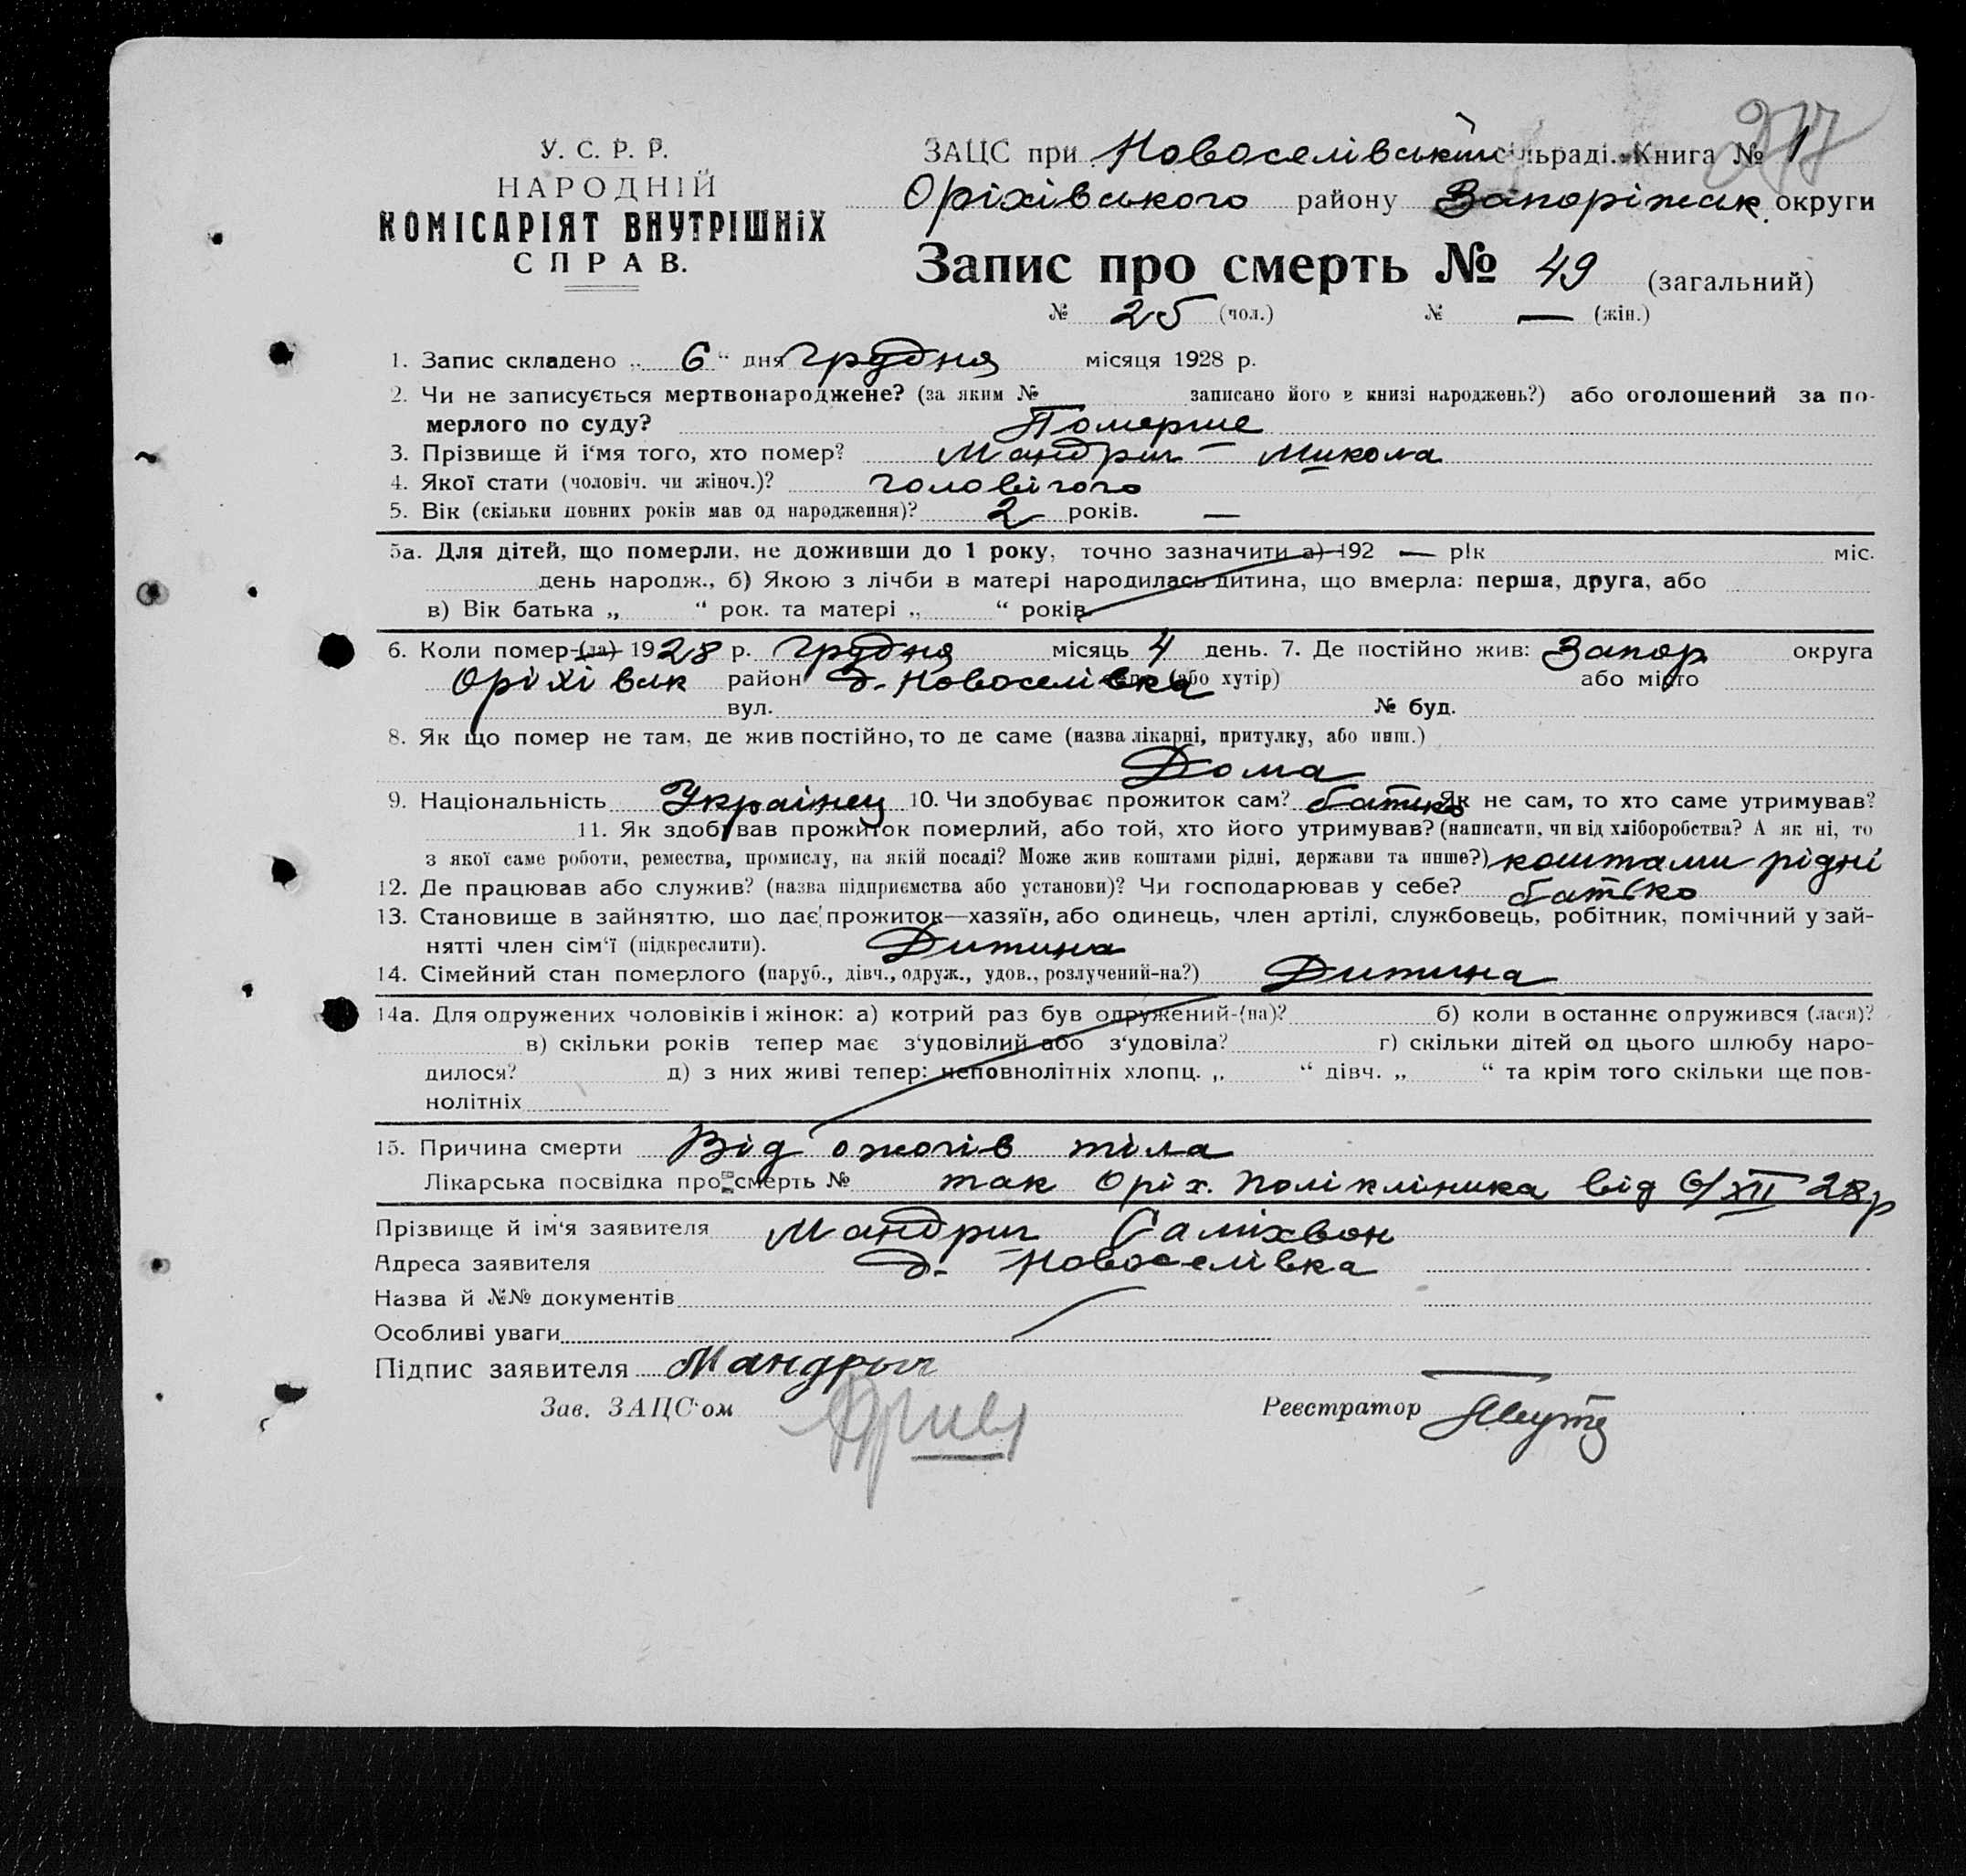 277
У. С. Р. Р.
НАРОДНІЙ
КОМІСАРІЯТ ВНУТРІШНІХ
СПРАВ.
ЗАЦС при Новоселівській сільраді. Книга № 1
Оріхівського району Запоріжськ. округи
Запис про смерть № 49 (загальний)
№ 25 (чол.) № — (жін.)
1. Запис складено „ 6 “ дня грудня місяця 1928 р.
2. Чи не записується мертвонароджене? (за яким № записано його в книзі народжень?) або оголошений за по-
мерлого по суду? Померше
3. Прізвище й і‘мя того, хто помер? Мандрич Микола
4. Якої стати (чоловіч. чи жіноч.)? чоловічого
5. Вік (скільки повних років мав од народження)? 2 років. —
5а. Для дітей, що померли, не доживши до 1 року, точно зазначити а) 192 — рік міс.
день народж., б) Якою з лічби в матері народилась дитина, що вмерла: перша, друга, або
в) Вік батька „ “ рок. та матері „ “ років
6. Коли помер-(ла) 1928 р. грудня місяць 4 день. 7. Де постійно жив: Запор округа
Оріхівськ район д. Новоселівка (або хутір) або місто
вул. № буд.
8. Як що помер не там, де жив постійно, то де саме (назва лікарні, притулку, або инш.)
Дома
9. Національність Українец 10. Чи здобуває прожиток сам? батько Як не сам, то хто саме утримував?
11. Як здобував прожиток померлий, або той, хто його утримував? (написати, чи від хліборобства? А як ні, то
з якої саме роботи, ремества, промислу, на якій посаді? Може жив коштами рідні, держави та инше?) коштами рідні
12. Де працював або служив? (назва підприємства або установи)? Чи господарював у себе? батько
13. Становище в зайняттю, що дає прожиток—хазяїн, або одинець, член артілі, службовець, робітник, помічний у зай-
нятті член сім‘ї (підкреслити). Дитина
14. Сімейний стан померлого (паруб., дівч., одруж., удов., розлучений-на?) Дитина
14а. Для одружених чоловіків і жінок: а) котрий раз був одружений-(на)? б) коли в останнє одружився (лася)?
в) скільки років тепер має з‘удовілий або з‘удовіла? г) скільки дітей од цього шлюбу наро-
дилося? д) з них живі тепер: неповнолітніх хлопц. „ “ дівч. „ “ та крім того скільки ще пов-
нолітніх
15. Причина смерти Від ожогів тіла
Лікарська посвідка про смерть № так Оріх. поліклініка від 6/XII 28р
Прізвище й ім‘я заявителя Мандрич Саміхвон
Адреса заявителя д. Новоселівка
Назва й №№ документів
Особливі уваги
Підпис заявителя Мандрыч
Зав. ЗАЦС‘ом Реєстратор